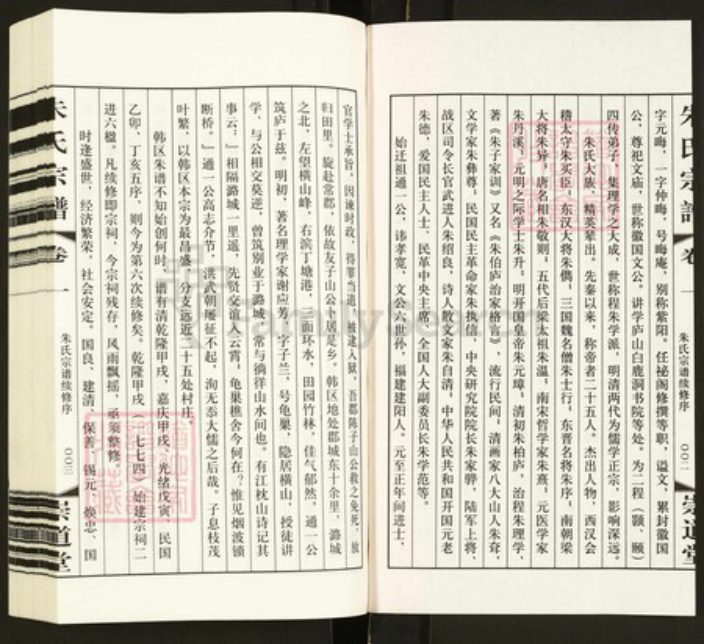 朱氏宗譜
卷一
朱氏宗谱续修序
〇〇二
崇道堂
字元晦，一字仲晦，号晦庵，别称紫阳。任祕阁修撰等职，谥文，累封徽国
公，尊祀文庙，世称徽国文公。讲学庐山白鹿洞书院等处。为二程（颢、颐）
四传弟子，集理学之大成，世称程朱学派，明清两代为儒学正宗，影响深远。
朱氏大族，精英辈出。先秦以来，称帝者二十五人。杰出人物，西汉会
稽太守朱买臣，东汉大将朱儁，三国魏名僧朱士行，东晋名将朱序，南朝梁
大将朱异，唐名相朱敬则，五代后梁太祖朱温，南宋哲学家朱熹，元医学家
朱丹溪，元明之际学士朱升，明开国皇帝朱元璋，清初朱柏庐，治程朱理学，
著《朱子家训》又名《朱伯庐治家格言》，流行民间，清画家八大山人朱耷，
文学家朱彝尊，民国民主革命家朱执信，中央研究院院长朱家骅，陆军上将、
战区司令长官武进人朱绍良，诗人散文家朱自清，中华人民共和国开国元老
朱德，爱国民主人士、民革中央主席、全国人大副委员长朱学范等。
始迁祖通一公，讳孝宽，文公六世孙，福建建阳人。元至正年间进士，
官学士承旨，因谏时政，得罪当道，被逮入狱，吾郡陈子山公救之免死，放
归田里。旋赴常郡，依故友子山公卜居是乡。韩区地处郡城东十余里，潞城
之北，左望横山峰，右滨丁塘港，面环水，田园竹林，佳气郁然，通一公
筑庐于兹。明初，著名理学家谢应芳，字子兰，号龟巢，隐居横山，授徒讲
学，与公相交莫逆，曾筑别业于潞城，常与徜徉山水间也。有江枕山诗记其
事云：“相隔潞城一里遥，先贤交谊入云霄。龟巢樵舍今何在？惟见烟波锁
断桥。”通一公高志介节，洪武朝屡征不起，洵无忝大儒之后哉。子息枝茂
叶繁，以韩区本宗为最昌盛，分支远近二十五处村庄。
韩区朱谱不知始创何时，谱有清乾隆甲戌、嘉庆甲戌、光绪戊寅、民国
乙卯、丁亥五序，则今为第六次续修矣。乾隆甲戌（一七七四）始建宗祠二
进六楹。凡续修即宗祠，今宗祠残存，风雨飘摇，亟须整修。
时逢盛世，经济繁荣，社会安定。国良、建清、保善、锡元、焕忠、国
朱氏宗譜
卷一
朱氏宗谱续修序
〇〇三
崇道堂
FamilySearch